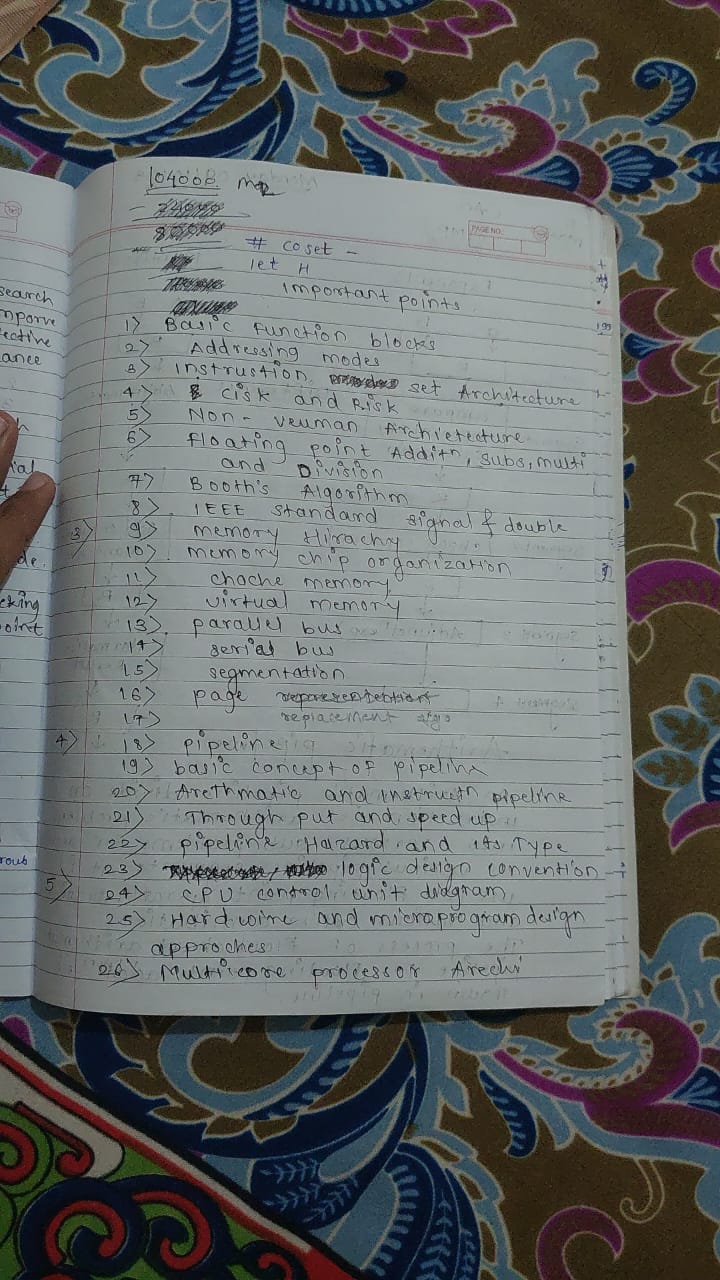 search
ective
ance
ial
de.
cking
point
roub
104000.
PAGE NO.
# coset -
let H
Important points
1> Basic Function blocks
2> Addressing modes
3> Instrustion set Architecture
4> cisk and Risk
5> Non - veuman Archietecture
6> Floating point Additn, subs, multi
and Division
7> Booth's Algorithm
8> IEEE standard signal & double
3> 9> memory Hirachy
10> memory chip organization
11> chache memory
12> virtual memory
13> parallel bus
14> serial bus
15> segmentation
16> page
17> replacement algo
4> 18> pipeline
19> basic concept of pipeline
20> Arethmatic and Instructn pipeline
21> Through put and speed up
22> pipeline Hazard and its Type
23> logic design convention
5> 24> CPU control unit diagram
25> Hard wire and microprogram design
approches
26> Multicore processor Arechi